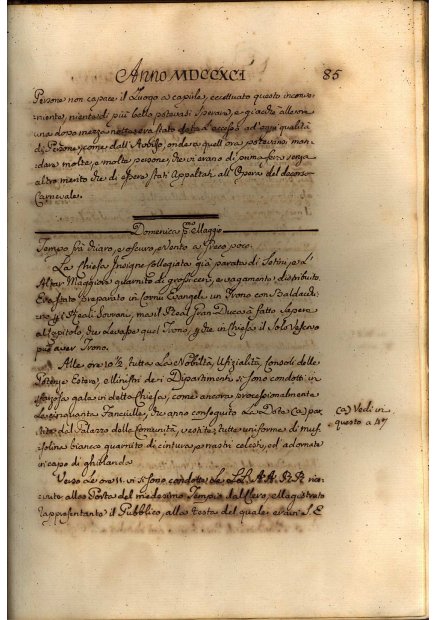 Anno MDCCXCI
85
Persone non capace il Luogo a capirle, eccettuato questo inconve-
niente, niente di più bello potevasi sperare, e giacchè alle ore
una dopo mezza notte era stato dato l'accesso ad ogni qualità
di Persone, come dall'Avviso, onde a quell'ora potevano man-
dare molte, e molte persone, che vi erano di prima fora senza
altro merito che di essere stati Appaltati all'Opera del decorso
Carnevale.
Domenica pmo Maggio
Tempo frà chiaro, e oscuro, e Vento a Greco poco.
La Chiesa Insigne Collegiata già parata di Setini, e L'
Altar Maggiore guarnito di grossi ceri, e vagamente distribuito.
Era stato preparato in Cornu Evangeli un Trono con Baldacchi-
no p. i Reali Sovrani, ma il Real Gran Duca à fatto sapere
al Capitolo, che Levasse quel Trono, p. che in Chiesa il Solo Vescovo
può aver Trono.
Alle ore 10½ tutta La Nobiltà, Ufizialità, Consoli delle
Potenze Estere, e Ministri dei Dipartimenti si sono condotti in
sfarzosa gala in detta Chiesa, come ancora processionalmente
Le Cinquanta Fanciulle, che anno conseguito La Dote (a) par-
tite dal Palazzo della Comunità, vestite tutte uniforme di mus-
solina bianca guarnito di cintura, e nastri celesti, ed adornate
in capo di ghirlanda.
(a) Vedi in
questo a 47
Verso Le ore 11. vi si sono condotte Le LL. AA. RR. rice-
vute alla Porta del medesimo Tempio dal Clero, e Magistrato
rappresentante il Pubblico, alla testa del quale eravi S. E